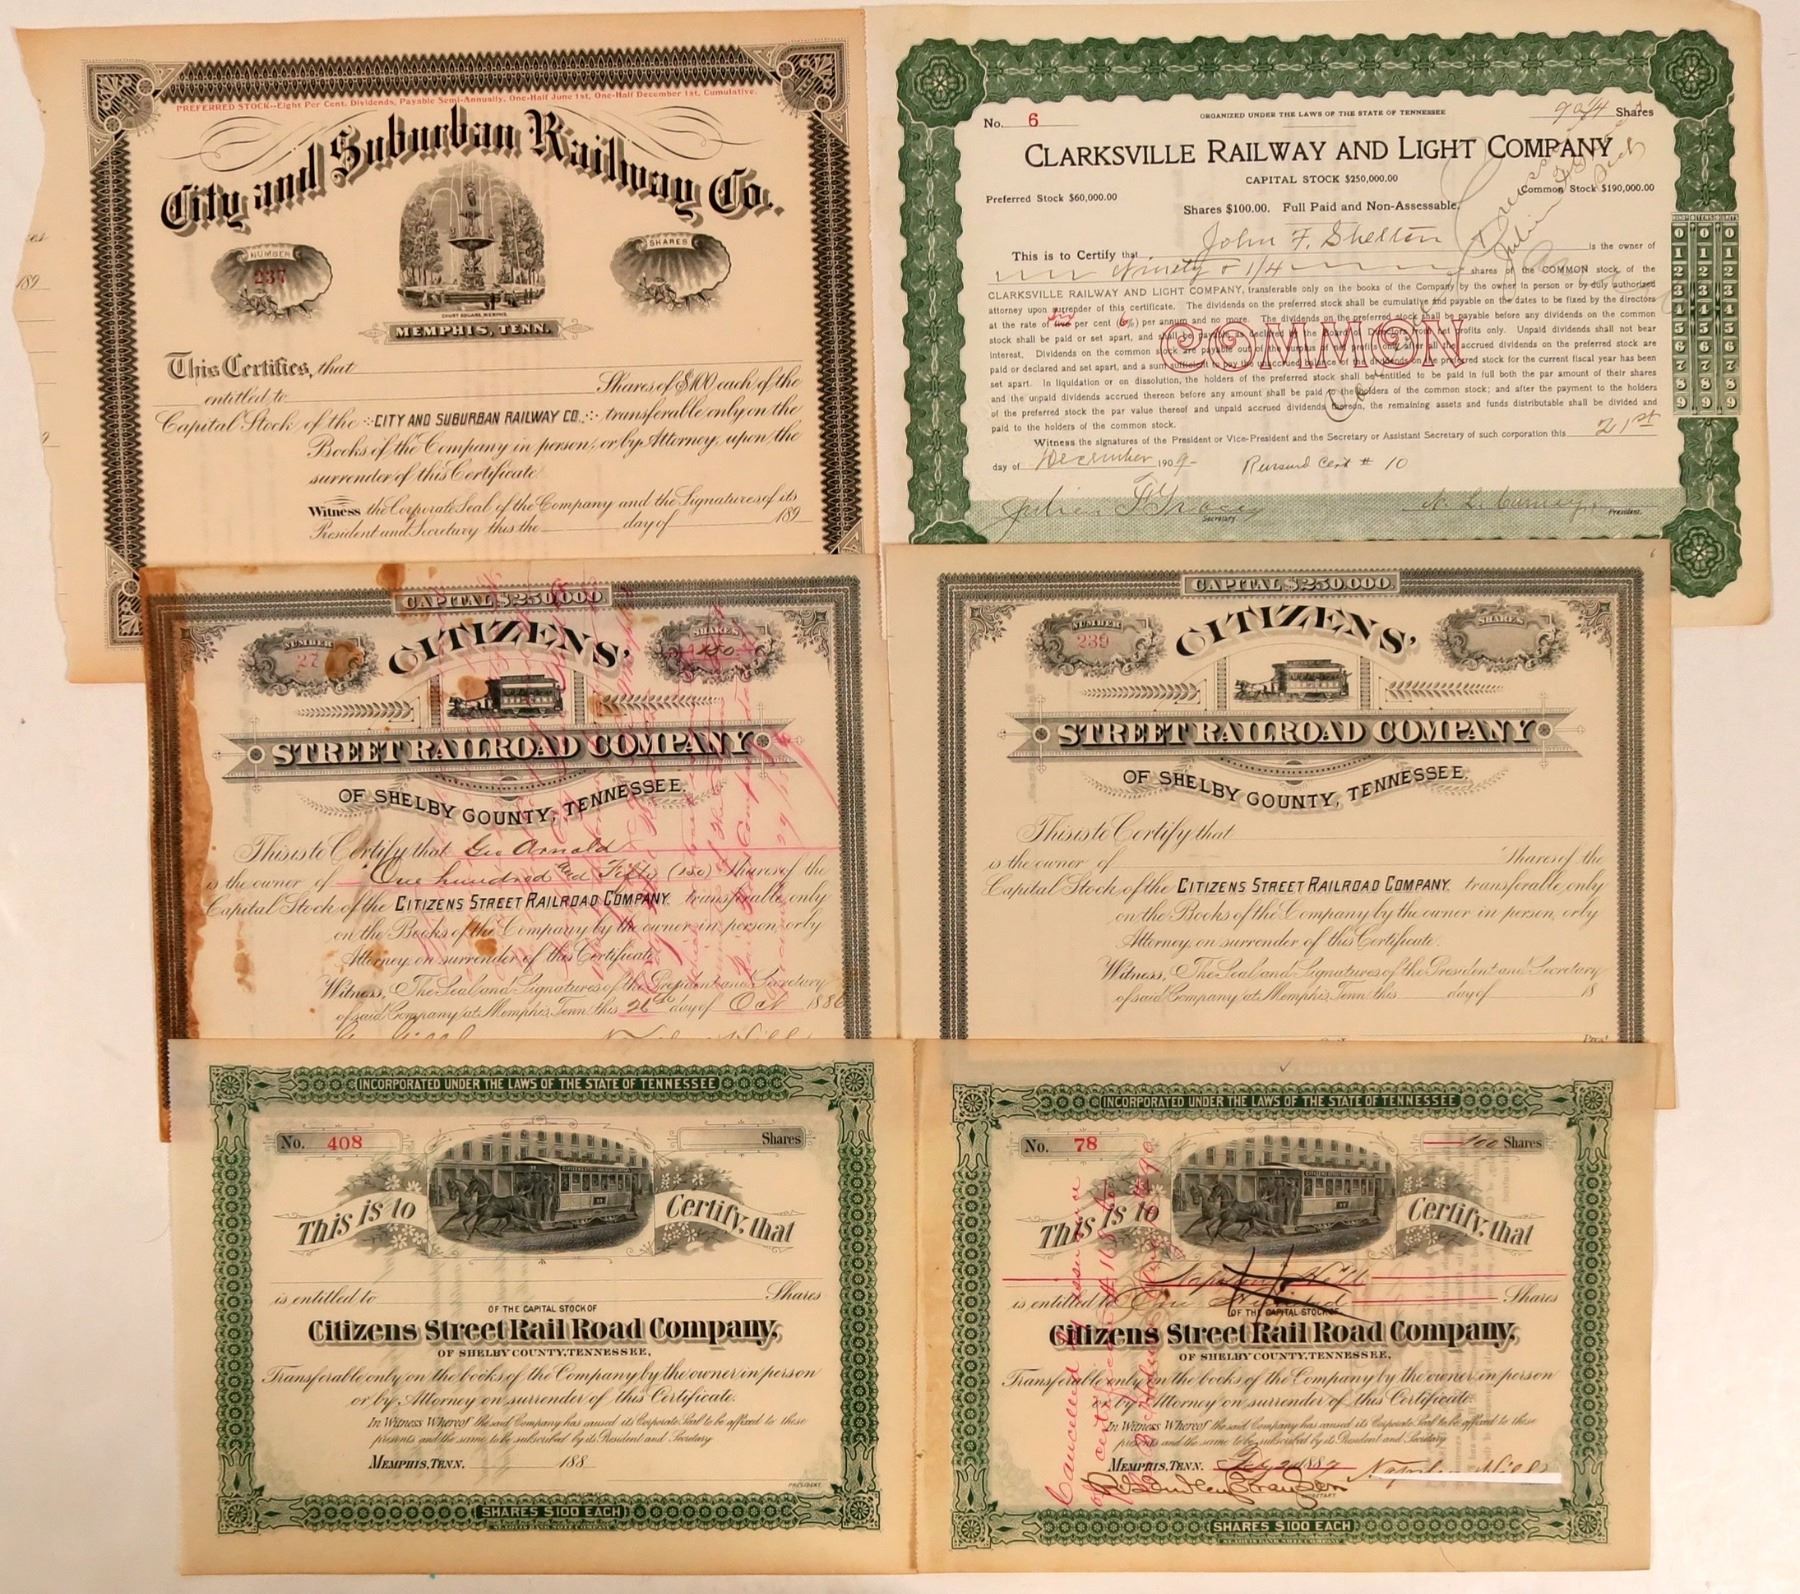 PREFERRED STOCK--Eight Per Cent. Dividends, Payable Semi-Annually, One-Half June 1st, One-Half December 1st, Cumulative.
City and Suburban Railway Co.
NUMBER
237
SHARES
COURT SQUARE, MEMPHIS.
MEMPHIS, TENN.
This Certifies, that
Shares of $100 each of the
entitled to
Capital Stock of the CITY AND SUBURBAN RAILWAY CO. transferable only on the
Books of the Company in person, or by Attorney, upon the
surrender of this Certificate.
Witness the Corporate Seal of the Company and the Signatures of its
President and Secretary this the day of 189
189
No. 6
ORGANIZED UNDER THE LAWS OF THE STATE OF TENNESSEE
90 1/4 Shares
CLARKSVILLE RAILWAY AND LIGHT COMPANY
CAPITAL STOCK $250,000.00
Preferred Stock $60,000.00
Common Stock $190,000.00
Shares $100.00. Full Paid and Non-Assessable.
This is to Certify that John F. Shelton is the owner of
Ninety & 1/4 shares of the COMMON stock of the
CLARKSVILLE RAILWAY AND LIGHT COMPANY, transferable only on the books of the Company by the owner in person or by duly authorized
attorney upon surrender of this certificate. The dividends on the preferred stock shall be cumulative and payable on the dates to be fixed by the directors
at the rate of six per cent (6%) per annum and no more. The dividends on the preferred stock shall be payable before any dividends on the common
stock shall be paid or set apart, and shall be payable as declared by the Board of Directors from net profits only. Unpaid dividends shall not bear
interest. Dividends on the common stock are payable out of the surplus or net profits only after all the accrued dividends on the preferred stock are
paid or declared and set apart, and a sum sufficient to pay the unaccrued balance of the dividends on the preferred stock for the current fiscal year has been
set apart. In liquidation or on dissolution, the holders of the preferred stock shall be entitled to be paid in full both the par amount of their shares
and the unpaid dividends accrued thereon before any amount shall be paid to the holders of the common stock; and after the payment to the holders
of the preferred stock the par value thereof and unpaid accrued dividends thereon, the remaining assets and funds distributable shall be divided and
paid to the holders of the common stock.
COMMON
Witness the signatures of the President or Vice-President and the Secretary or Assistant Secretary of such corporation this 21st
day of December 1909 Reissued Cert # 10
Secretary
President.
0 0 0
1 1 1
2 2 2
3 3 3
4 4 4
5 5 5
6 6 6
7 7 7
8 8 8
9 9 9
CAPITAL $250,000.
NUMBER
27
CITIZENS'
SHARES
150
STREET RAILROAD COMPANY
OF SHELBY COUNTY, TENNESSEE.
This is to Certify that Geo Arnold
is the owner of One hundred and Fifty (150) Shares of the
Capital Stock of the CITIZENS STREET RAILROAD COMPANY. transferable only
on the Books of the Company by the owner in person, or by
Attorney, on surrender of this Certificate.
Witness, The Seal and Signatures of the President and Secretary
of said Company at Memphis, Tenn. this 26th day of Oct 1886
CAPITAL $250,000.
NUMBER
239
CITIZENS'
SHARES
STREET RAILROAD COMPANY
OF SHELBY COUNTY, TENNESSEE.
This is to Certify that
is the owner of Shares of the
Capital Stock of the CITIZENS STREET RAILROAD COMPANY. transferable only
on the Books of the Company by the owner in person, or by
Attorney, on surrender of this Certificate.
Witness, The Seal and Signatures of the President and Secretary
of said Company at Memphis, Tenn. this day of 18
INCORPORATED UNDER THE LAWS OF THE STATE OF TENNESSEE
No. 408
Shares
This is to Certify, that
is entitled to Shares
OF THE CAPITAL STOCK OF
Citizens Street Rail Road Company,
OF SHELBY COUNTY, TENNESSEE,
Transferable only on the books of the Company by the owner in person
or by Attorney on surrender of this Certificate.
In Witness Whereof the said Company has caused its Corporate Seal to be affixed to these
presents and the same to be subscribed by its President and Secretary
MEMPHIS, TENN. 188
PRESIDENT
SHARES $100 EACH
INCORPORATED UNDER THE LAWS OF THE STATE OF TENNESSEE
No. 78
100 Shares
This is to Certify, that
Napoleon Hill
is entitled to One Hundred Shares
OF THE CAPITAL STOCK OF
Citizens Street Rail Road Company,
OF SHELBY COUNTY, TENNESSEE,
Transferable only on the books of the Company by the owner in person
or by Attorney on surrender of this Certificate.
In Witness Whereof the said Company has caused its Corporate Seal to be affixed to these
presents and the same to be subscribed by its President and Secretary
MEMPHIS, TENN. 1887 Napoleon Hill
SECRETARY
SHARES $100 EACH
Cancelled by issuance
of certificate #